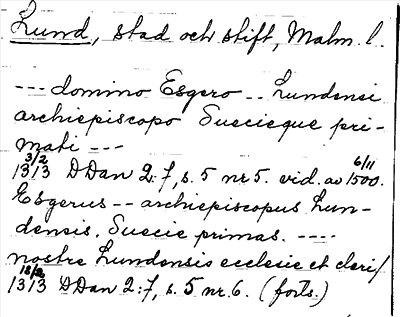 Lund, stad och stift, Malm. l.
--- domino Esgero -- Lundensi
archiepiscopo Suecieque pri-
mati ---
3/2 6/11
1313 DDan 2:7, s. 5 nr 5. vid. av 1500.
Esgerus -- archiepiscopus Lun-
densis, Suecie primas. ----
nostre Lundensis ecclesie et cleri/
18/2
1313 DDan 2:7, s. 5 nr. 6. (forts.)